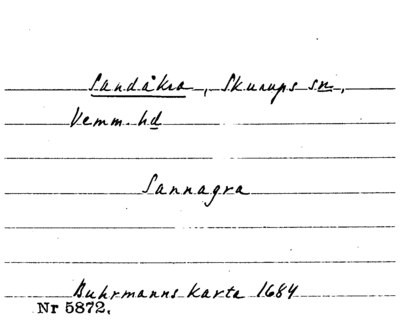 Sandåkra, Skurups sn,
Vemm. hd
Sannagra
Buhrmanns karta 1684
Nr 5872.